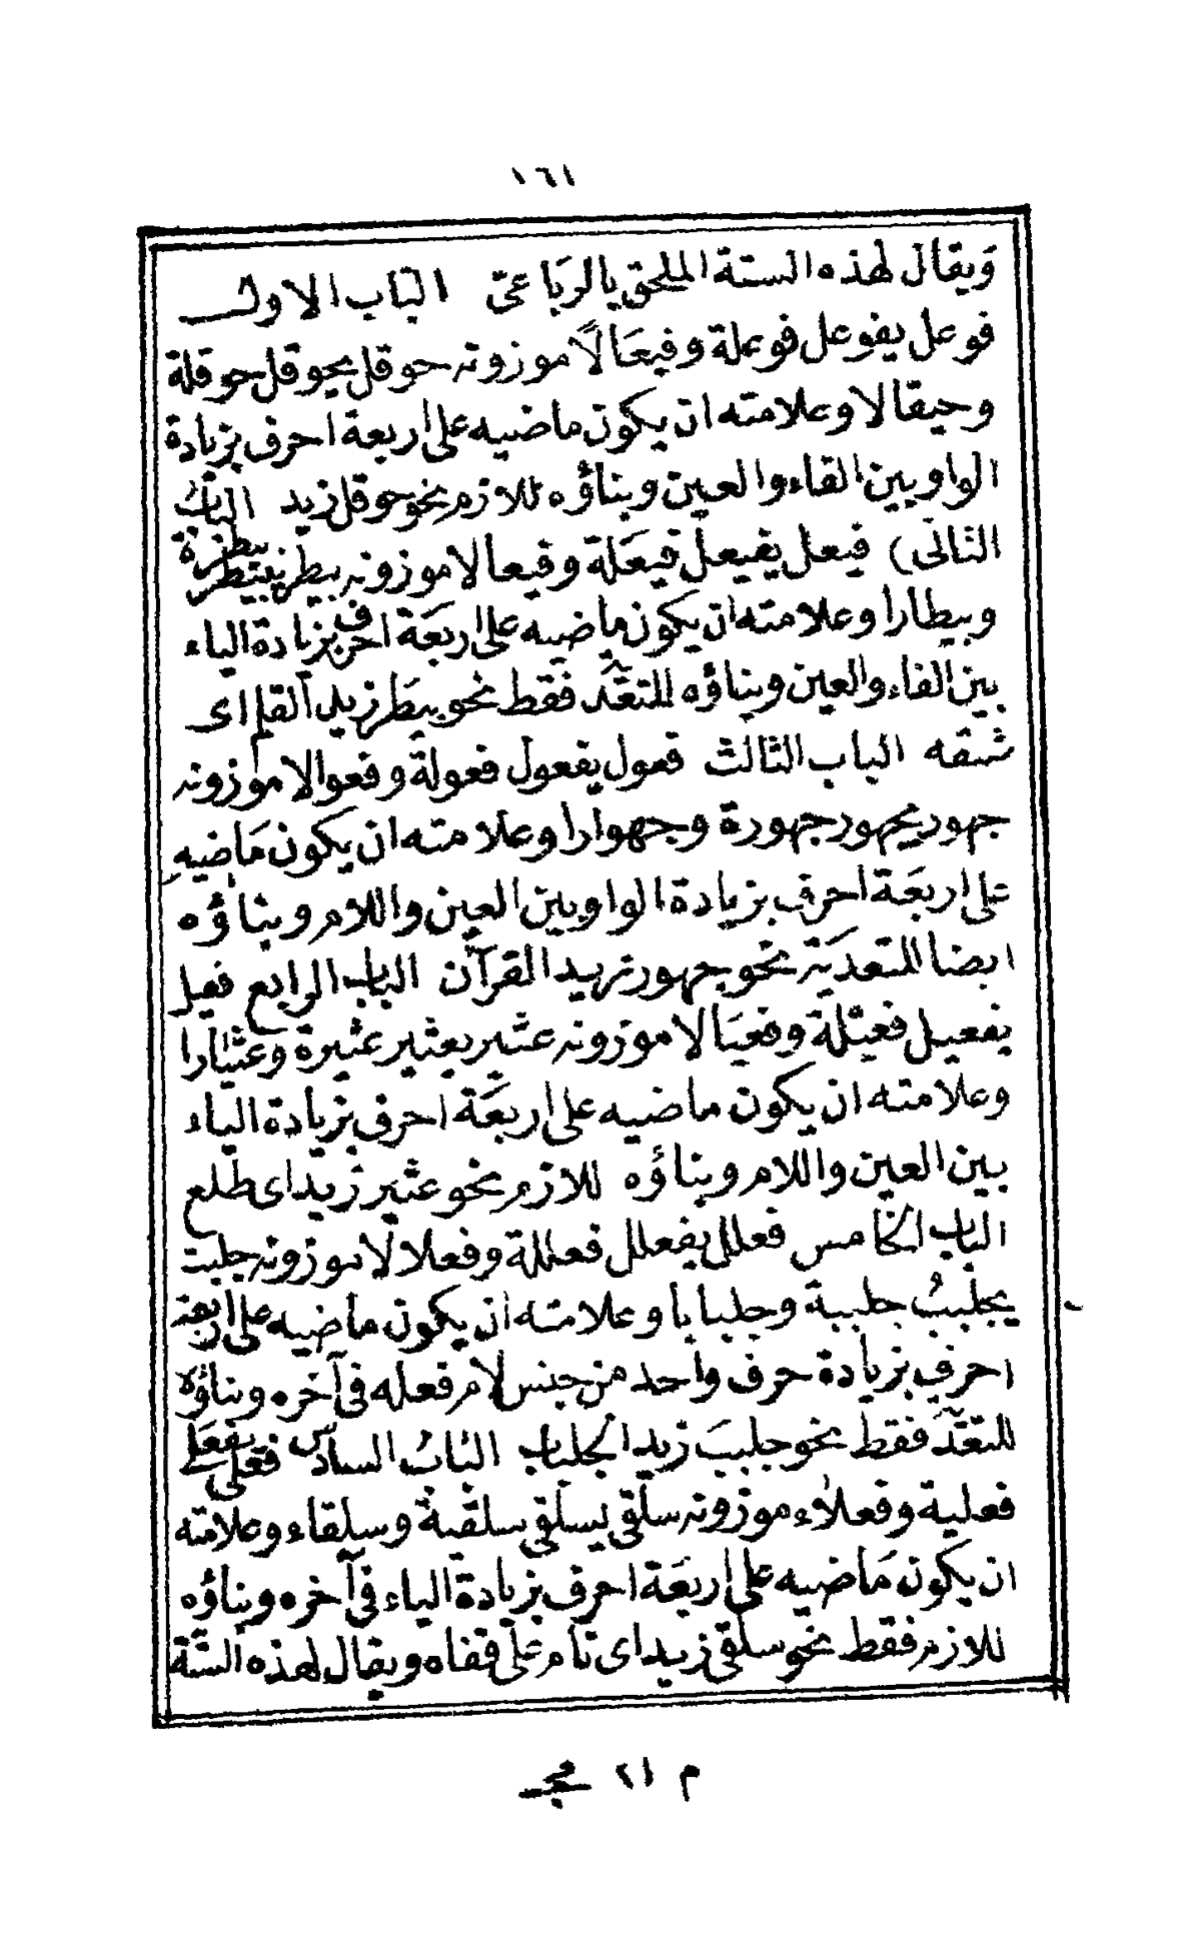 ١٦١
وَيقال لهذه الستة الملحق بالرباعىّ الباب الاول
فوعل يفوعل فوعلة وفيعَالًا موزونه حوقل يحوقل حوقلة
وحيقالا وعلامته ان يكون ماضيه على اربعة احرف بزيادة
الواو بين الفاء والعين وبناؤه للازم نحو حوقل زيد البابُ
الثانى) فيعل يفيعل فيعَلة وفيعالا موزونه بيطر يبيطر بيطرة
وبيطارا وعلامته ان يكون ماضيه على اربعَة احرف بزيادة الياء
بين الفاء والعين وبناؤه للمتعّد فقط نحو بيطَر زيد القلم اى
شقه الباب الثالث فعول يفعول فعولة وفعوالا موزونه
جهور يجهور جهورة وجهوارا وعلامته ان يكون مَاضيهِ
على اربعَة احرف بزيادة الواو بين العين واللام وبناؤه
ايضا للمتعدَيَة نحو جهور زيد القرآن الباب الرابع فعيل
يفعيل فعيَلة وفعيَالا موزونه عثير يعثير عثيرة وعثيارا
وعلامته ان يكون ماضيه على اربعَة احرف بزيادة الياء
بين العين واللام وبناؤه للازم نحو عثير زيد اى طلع
الباب الخامس فعلل يفعلل فعللة وفعلالا موزونه جلبب
يجلببُ جلببة وجلبابا وعلامته ان يكون ماضيه على اربعة
احرف بزيادة حرف واحد من جنس لام فعله فى آخره وبناؤه
للمتعّد فقط نحو جلببَ زيد الجلباب البابُ السادس فعلى يفعلى
فعلية وفعلاء موزونه سلقى يسلقى سلقية وسلقاء وعلامته
ان يكون مَاضيه على اربعَة احرف بزيادة الياء فى آخره وبناؤه
للازم فقط نحو سلقى زيد اى نام على قفاه ويقال لهذه الستّة
م ٢١ مجـ